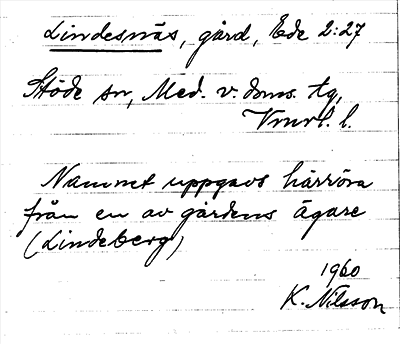 Lindesnäs, gård, Ede 2:27
Stöde sn, Med. v. doms. tg,
Vnrl. l.
Namnet uppgavs härröra
från en av gårdens ägare
(Lindeberg)
1960
K. Nilsson